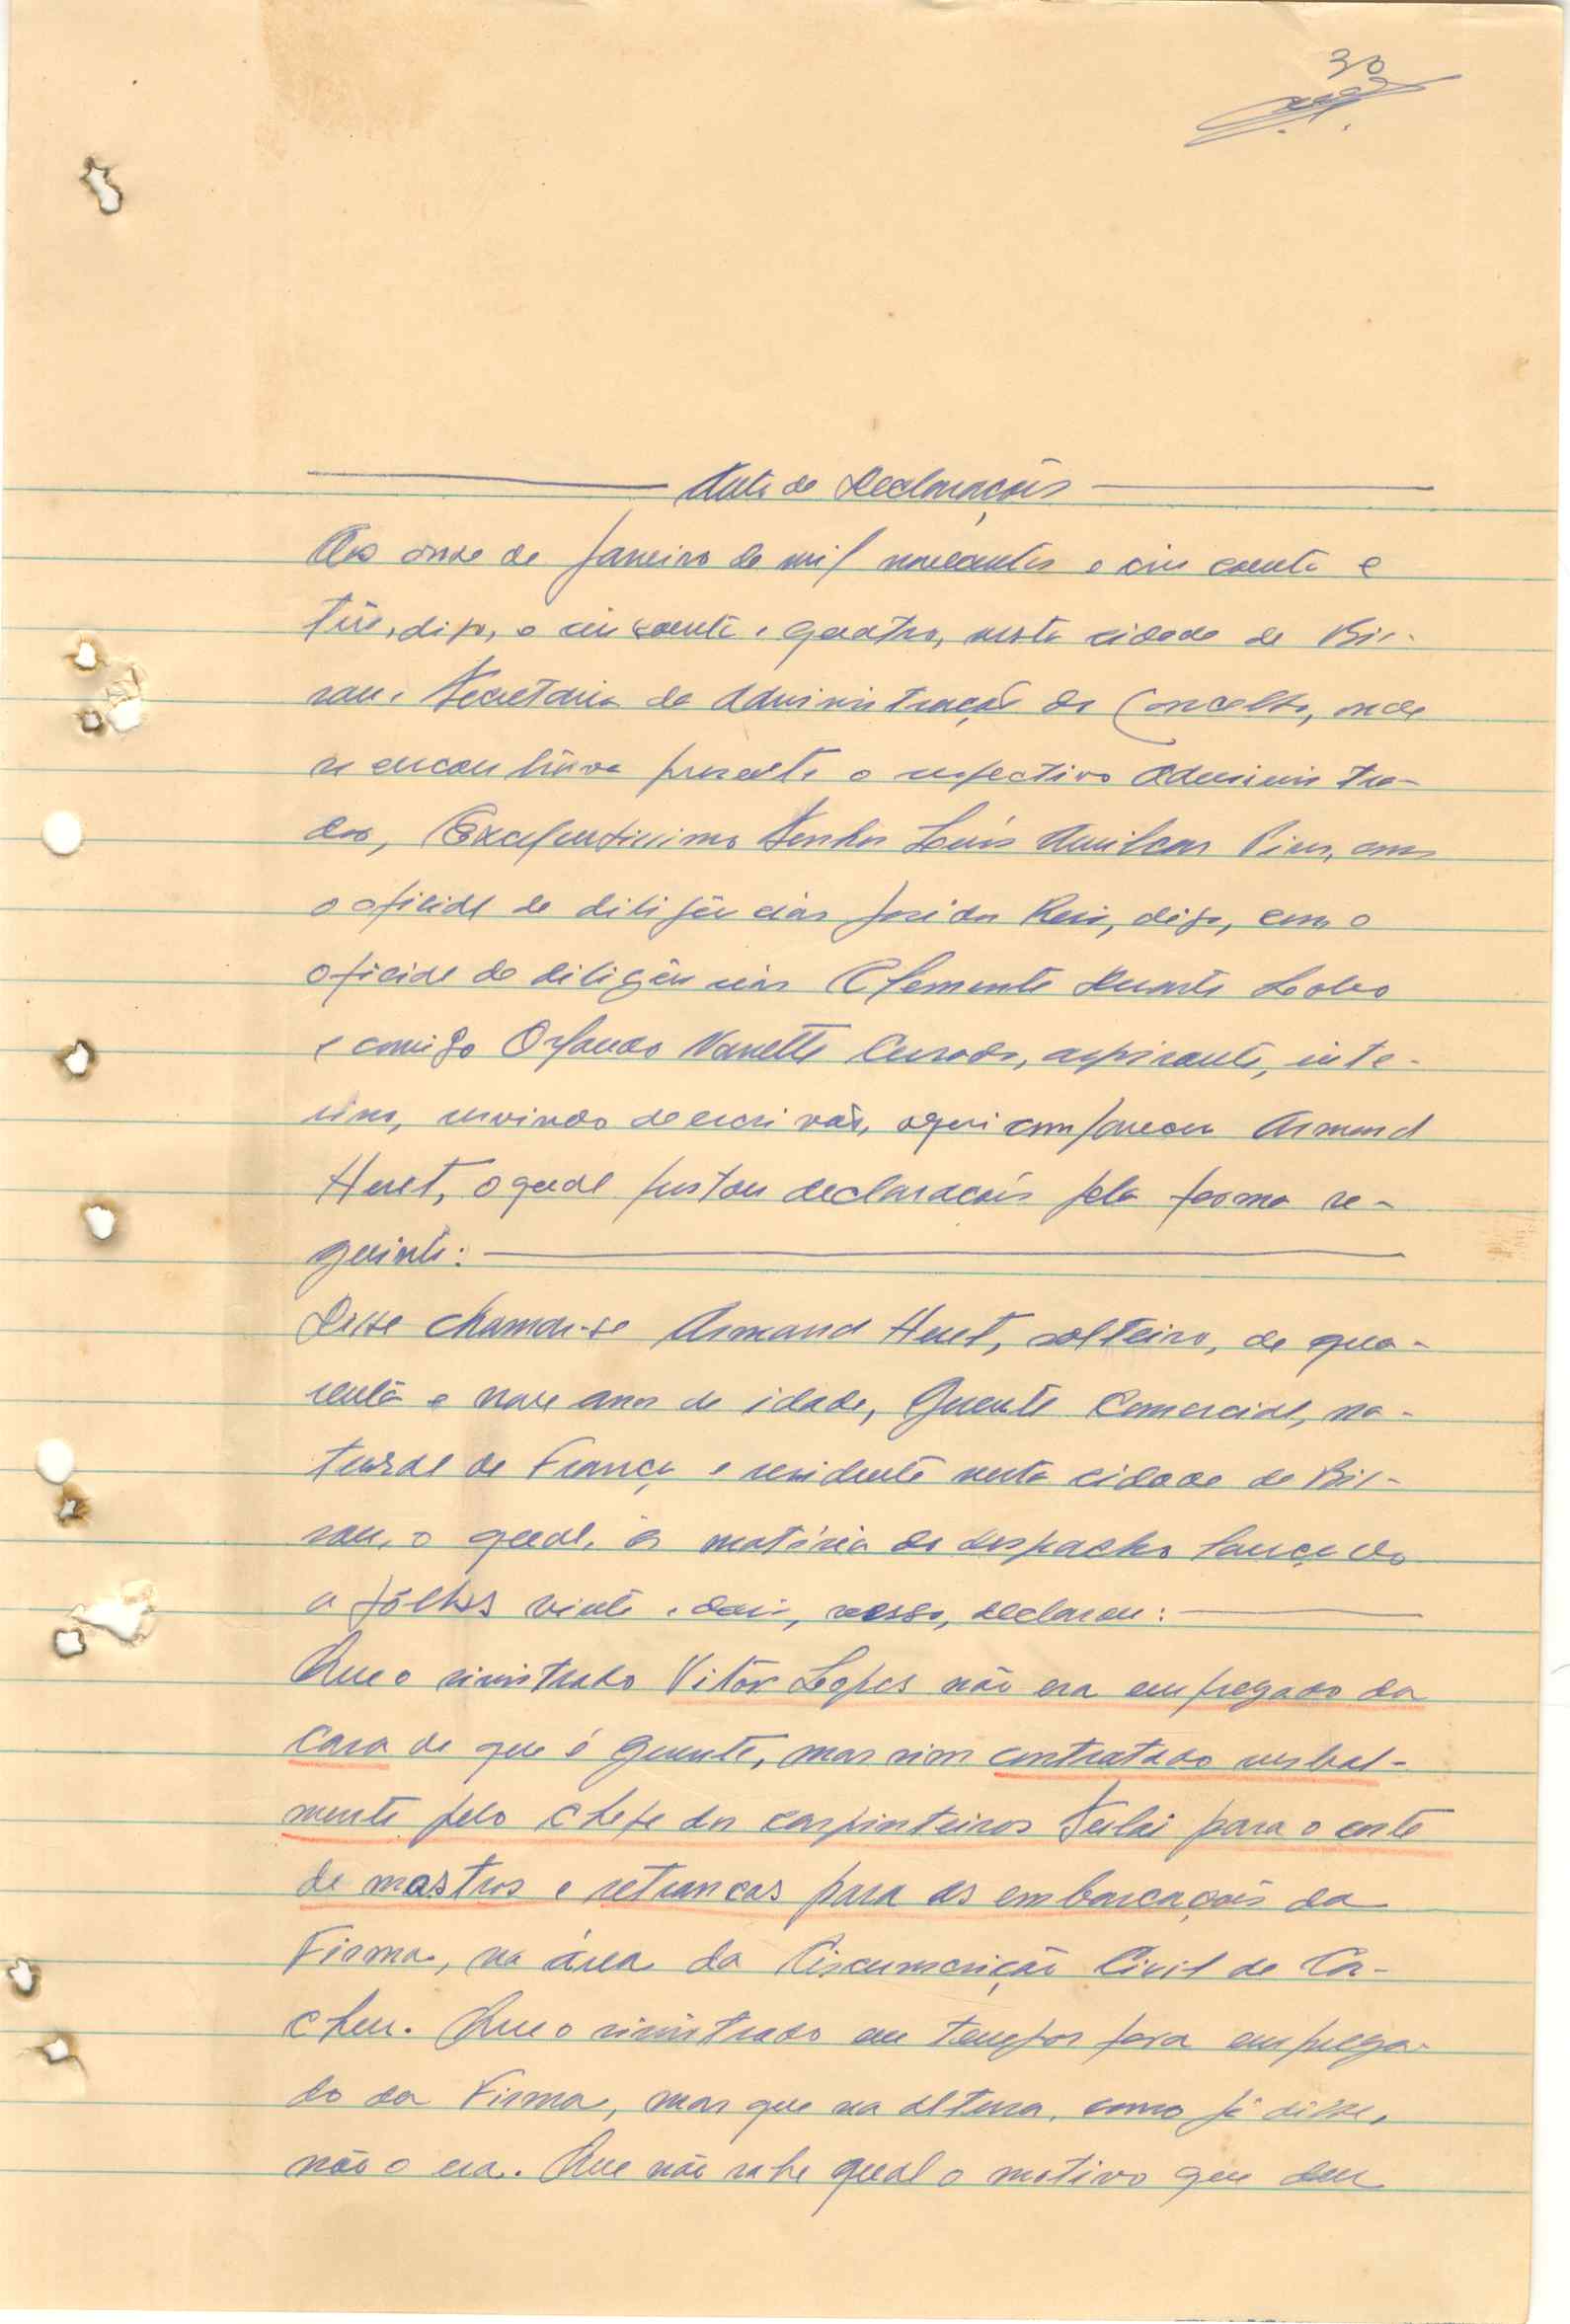 30
Auto de Declarações
Aos onze de Janeiro de mil novecentos e cincoenta e
três, digo, e cincoenta e quatro, nesta cidade de Bis-
sau e Secretaria da Administração do Concelho, onde
se encontrava presente o respectivo Administra-
dor, Excelentissimo Senhor Luís Amilcar Pires, com
o oficial de diligências José dos Reis, digo, com o
oficial de diligências Clemente Duarte Lobo
e comigo Orlando Nanette Curado, aspirante, inte-
rino, servindo de escrivão, aqui compareceu Armand
Huet, o qual prestou declarações pela forma se-
guinte:
Disse chamar-se Armand Huet, solteiro, de qua-
renta e nove anos de idade, Gerente Comercial, na-
tural de França e residente nesta cidade de Bis-
sau, o qual, à matéria do despacho lançado
a fôlhas vinte e dois, verso, declarou:
Que o sinistrado Vitôr Lopes não era empregado da
Casa de que é gerente, mas sim contratado verbal-
mente pelo chefe dos carpinteiros para o corte
de mastros e retrancas para as embarcações da
Firma, na área da Circunscrição Civil de Ca-
cheu. Que o sinistrado em tempos fora emprega-
do da Firma, mas que na altura, como já disse,
não o era. Que não sabe qual o motivo que deu